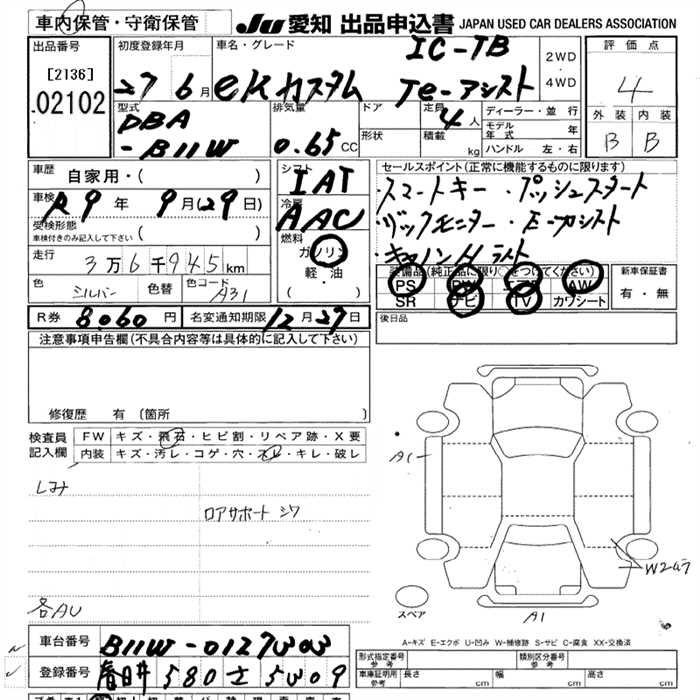 車内保管・守衛保管
JU 愛知 出品申込書 JAPAN USED CAR DEALERS ASSOCIATION
出品番号
[2136]
02102
初度登録年月
27 6月
車名・グレード
IC-TB
eKカスタム Te-アシスト
2WD
・
4WD
評価点
4
外装 内装
B B
型式
DBA
-B11W
排気量
0.65CC
ドア
形状
定員
4人
積載
kg
ディーラー・並行
モデル年式 年
ハンドル 左・右
車歴
自家用・( )
車検
R9年 9月(29日)
受検形態
車検付きのみ記入して下さい ( )
走行
3万6千945km
色
シルバー
色替
色コード
A31
シフト
IAT
冷房
AAC
燃料
ガソリン
・
軽・油
( )
セールスポイント(正常に機能するものに限ります)
・スマートキー ・プッシュスタート
・バックモニター ・E-アシスト
装備品(純正品に限り)をつけてください)
PS PW AW
SR ナビ TV カワシート
新車保証書
有・無
後日品
R券 8060円
名変通知期限 12月27日
注意事項申告欄(不具合内容等は具体的に記入して下さい)
修復歴 有 (箇所
検査員
記入欄
FW キズ・飛石・ヒビ割・リペア跡・X要
内装 キズ・汚レ・コゲ・穴・スレ・キレ・破レ
しみ
ロアサポート シワ
各AU
A1
W2
スペア
A1
A-キズ E-エクボ U-凹み W-補修跡 S-サビ C-腐食 XX-交換済
車台番号 B11W-0127303
登録番号 春日井 580 さ 5309
形式指定番号
参考
類別区分番号
参考
車庫証明用
参考
長さ cm
幅 cm
高さ cm